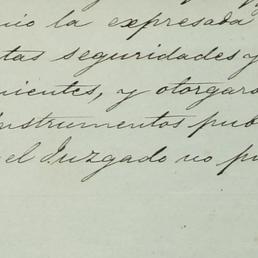 nio la expresada
tas seguridades y
nientes, y otorgara
instrumentos pub
el Juzgado no pu